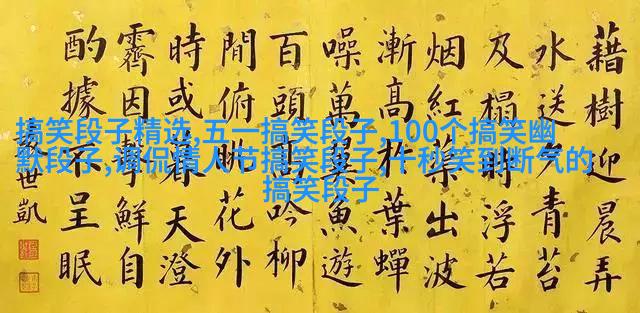 搞笑段子精选,五一搞笑段子,100个搞笑幽
默段子,调侃情人节搞笑段子,十秒笑到断气的
搞笑段子
藉樹迎晨弄
水送夕青苔
及榻時浮若
烟紅藥出波
漸高於葉蟬
噪萬魚遊
百頭高吟柳
間俯映花外
時或春天澄
霽因鮮自
酌據不呈眠
世凱